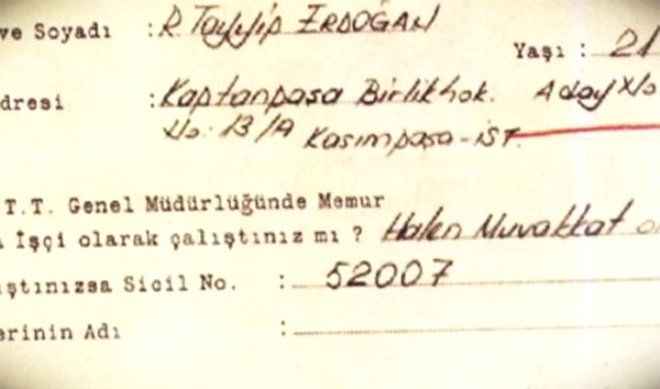 ve Soyadı : R. Tayyip ERDOĞAN
Yaşı : 21
dresi : Kaptanpaşa Birlikhok. Aday No
No: 13/A Kasımpaşa-İST.
.T.T. Genel Müdürlüğünde Memur
İşçi olarak çalıştınız mı ? Halen Muvakkat
ıştınızsa Sicil No. : 52007
erinin Adı :